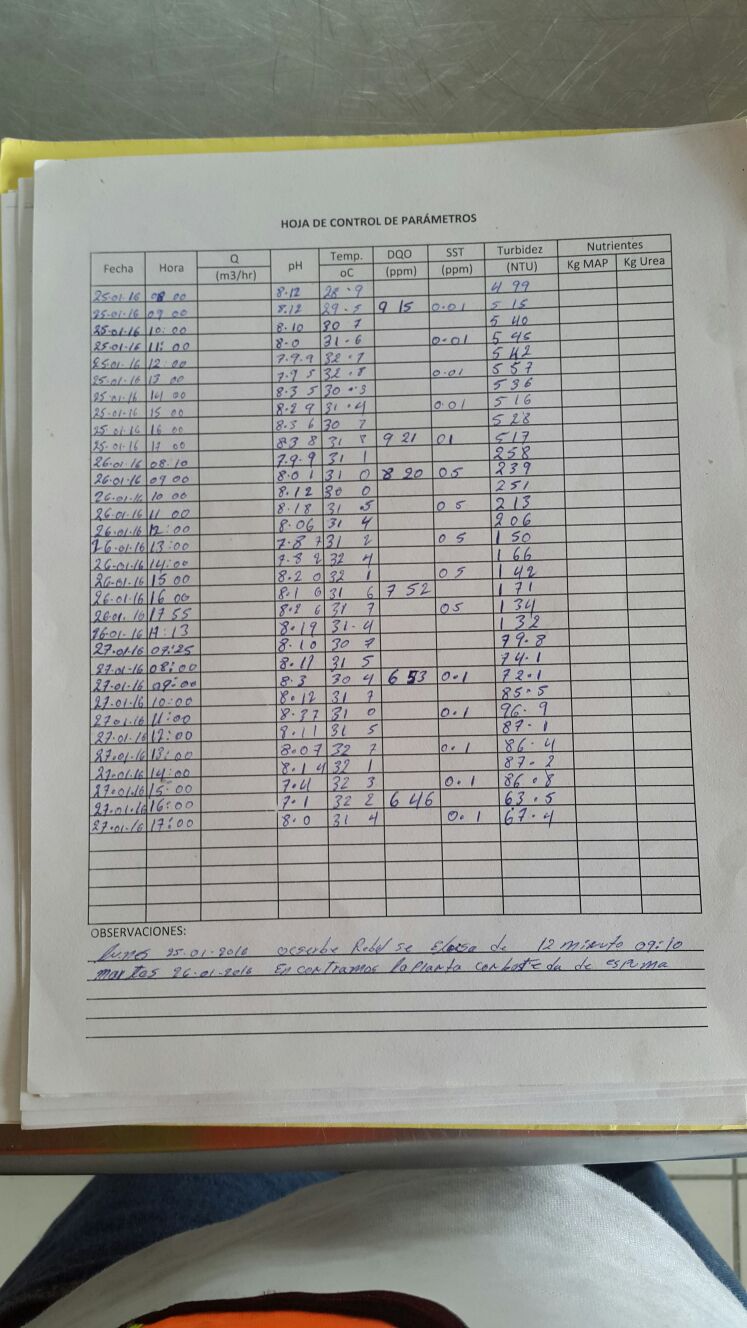 HOJA DE CONTROL DE PARÁMETROS
Fecha Hora Q (m3/hr) pH Temp. oC DQO (ppm) SST (ppm) Turbidez (NTU) Nutrientes Kg MAP Kg Urea
25.01.16 08 00 8.12 28.9 4 99
25.01.16 09 00 8.12 29.5 9 15 0.01 5 15
25.01.16 10:00 8.10 30 7 5 40
25.01.16 11:00 8.0 31.6 0.01 5 45
25.01.16 12:00 7.9.9 32.7 5 42
25.01.16 13 00 7.9 5 32.8 0.01 5 57
25.01.16 14 00 8.3 5 30.3 5 36
25.01.16 15 00 8.2 9 31.4 0.01 5 16
25.01.16 16 00 8.5 6 30 7 5 28
25.01.16 17 00 8 3 8 31 8 9 21 01 5 17
26.01.16 08.10 7.9.9 31 1 258
26.01.16 09 00 8.0 1 31 0 8 20 05 239
26.01.16 10 00 8.12 30 0 251
26.01.16 11 00 8.18 31 5 0 5 213
26.01.16 12:00 8.06 31 4 206
26.01.16 13:00 7.8 7 31 2 0 5 1 50
26.01.16 14:00 7.8 2 32 4 1 66
26.01.16 15 00 8.2 0 32 1 0 5 1 42
26.01.16 16 00 8.1 6 31 6 7 52 1 71
26.01.16 17 55 8.2 6 31 7 05 1 34
26.01.16 17:13 8.19 31.4 1 32
27.01.16 07:25 8.10 30 7 79.8
27.01.16 08:00 8.11 31 5 74.1
27.01.16 09:00 8.3 30 4 6 53 0.1 72.1
27.01.16 10:00 8.12 31 7 85.5
27.01.16 11:00 8.37 31 0 0.1 96.9
27.01.16 12:00 8.11 31 5 87.1
27.01.16 13:00 8.07 32 7 0.1 86.4
27.01.16 14:00 8.1 4 32 1 87.2
27.01.16 15:00 7.4 32 3 0.1 86.8
27.01.16 16:00 7.1 32 2 6 46 63.5
27.01.16 17:00 8.0 31 4 0.1 67.4
OBSERVACIONES:
lunes 25.01.2016 se de 12 minuto 09:10
martes 26.01.2016 Encontramos la planta con de espuma